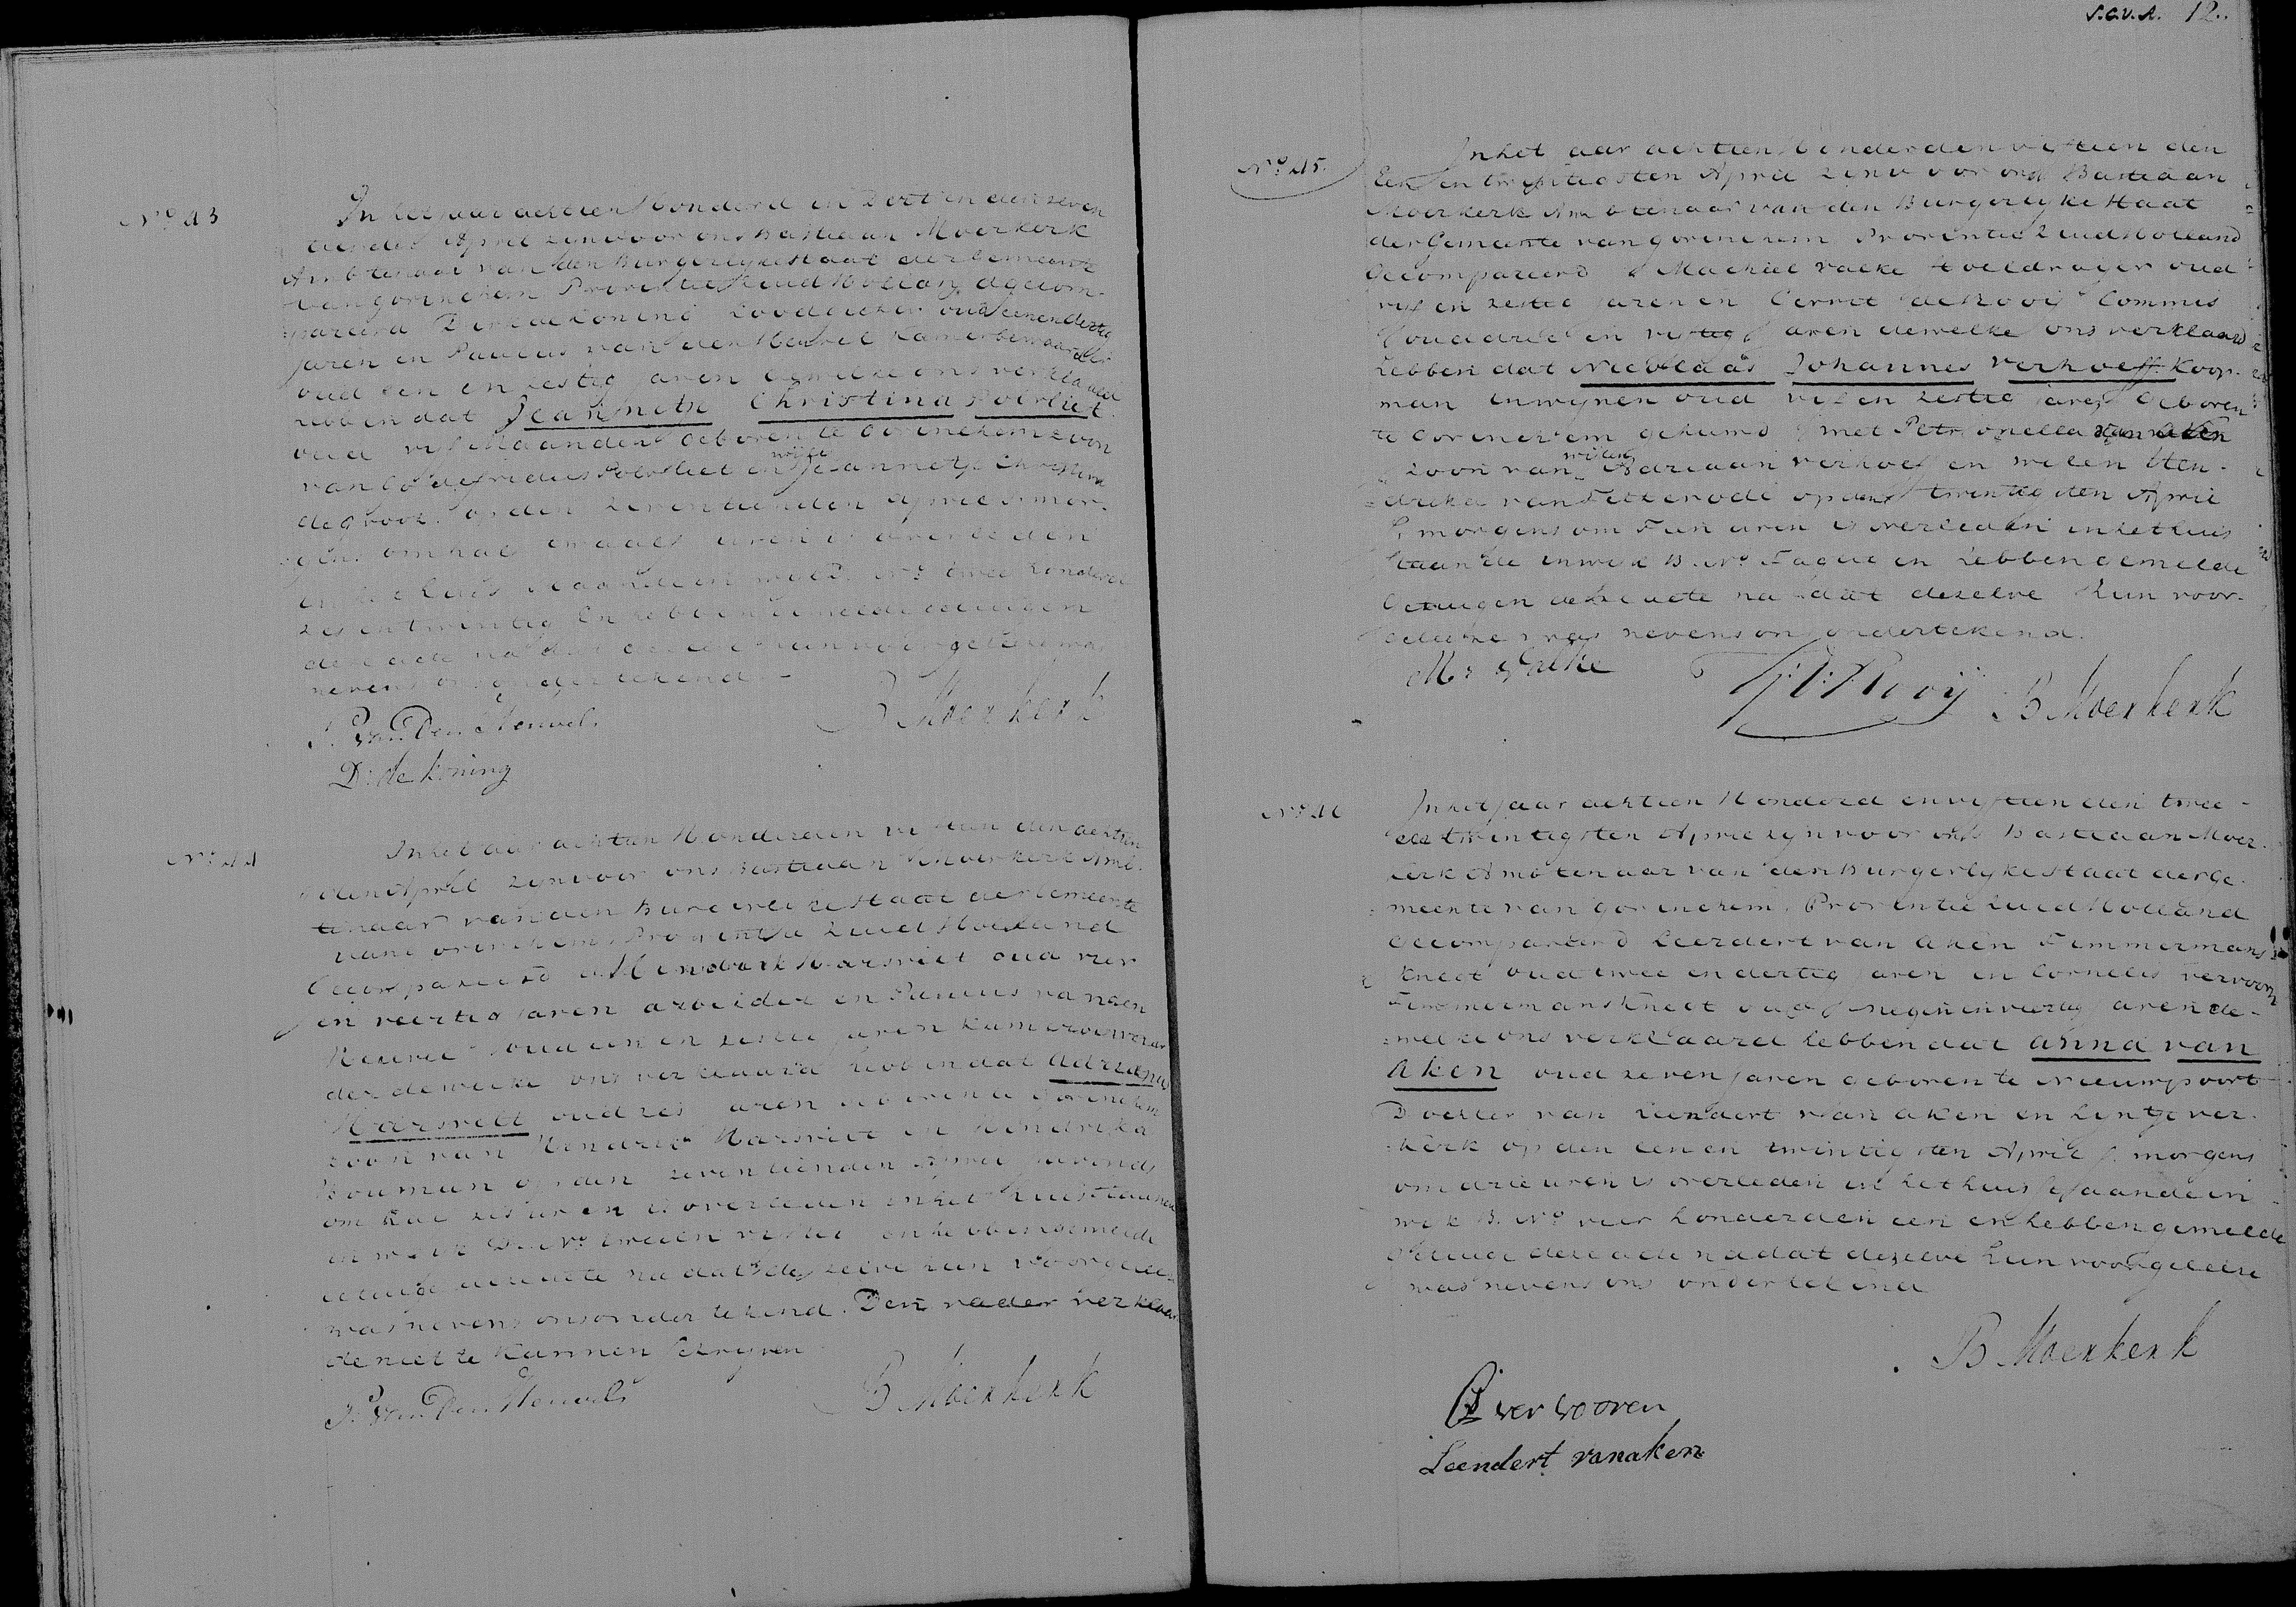 S.A.V.A. 12.
No 43
In het jaar achtien Honderd en den seven
tienden April zyn voor ons Bastiaan Moerkerk
Ambtenaar van den Burgerlyke Staat der Gemeente
van gorinchem Provintie Zuid Holland gecom-
pareerd Dirk de Koning oud eenendertig
jaren en Paulus van den Heuvel kamerbewaarder
oud een en sestig jaren dewelke ons verklaard
hebben dat Jeannetje Christina Poolvliet
oud vyf Maanden geboren te Gorinchem
van Godefridus Poolvliet en Jeannetje Christina
de groot op den zeventienden April s mor-
gens om half twaalf uren is overleden
in het huis staande in wyk No twee honderd
zes en twintig En hebben gemelde getuigen
deze acte na dat deselve hun voorgelesen was
nevens ons ondertekend
P. van Den Heuvel
B Moerkerk
D: de koning
No 44
In het jaar achtien Honderd en vyftien den achtien
den April zyn voor ons Bastiaan Moerkerk Amb-
tenaar van den Burgerlyke Staat der Gemeente
van Gorinchem Provintie Zuid Holland
Gecompareerd Hendrik Harsvelt oud vier
en veertig jaren arbeider en Paulus van den
Heuvel oud een en sestig jaren kamerbewaar
der dewelke ons verklaard hebben dat Adrianus
Harsvelt oud zes jaren geboren te Gorinchem
zoon van Hendrik Harsvelt en Hendrika
Bouman op den zeventienden April s avonds
om half zes uren is overleden in het huis staande
in wyk D. No twee en vyftig en hebben gemelde
getuige deze acte na dat deselve hun voorgelese
was nevens ons ondertekend. Den vader verklaar
de niet te kunnen schryven
P. van Den Heuvel
B Moerkerk
No 45.
In het jaar achtien Honderd en vyftien den
Een en twintigsten April zyn voor ons Bastiaan
Moerkerk Ambtenaar van den Burgerlyke Staat
der Gemeente van gorinchem Provintie Zuid Holland
Gecompareerd Machiel Valke oud
vyf en zestig jaren en Gerrit de Rooij Commis
oud drie en vertig jaren dewelke ons verklaard
hebben dat Nicolaas Johannes Verhoeff koop-
man in wynen oud vyf en zestig jaren Geboren
te Gorinchem gehuwd met Petronella van Aken
zoon van wylen Adriaan verhoef en wylen Hen-
drika van op den twintigsten April
s morgens om Tien uren is overleden in het huis
staande in wyk B. No en hebben gemelde
Getuigen deze acte na dat deselve Hun voor-
gelese was nevens ons ondertekend.
M: Valke
G: D: Rooij
B Moerkerk
No 46
In het jaar achtien Honderd en vyftien den twee-
en twintigsten April zyn voor ons Bastiaan Moer-
kerk Ambtenaar van den Burgerlyke Staat der Ge-
meente van gorinchem. Provintie Zuid Holland
gecompareerd Leendert van Aken Timmermans
knegt oud twee en dertig jaren en Cornelis vervooren
Timmermansknegt oud negen en veertig jaren de-
welke ons verklaard hebben dat anna van
Aken oud zeven jaren geboren te nieuwpoort
Dochter van Leendert van aken en Lyntje ver-
kerk op den een en twintigsten April s. morgens
om drie uren is overleden in het huis staande in
wyk B. No vier honderd en een en hebben gemelde
Getuige deze acte nadat deselve hun voorgelese
was nevens ons ondertekend
B Moerkerk
C ver vooren
Leendert van aken